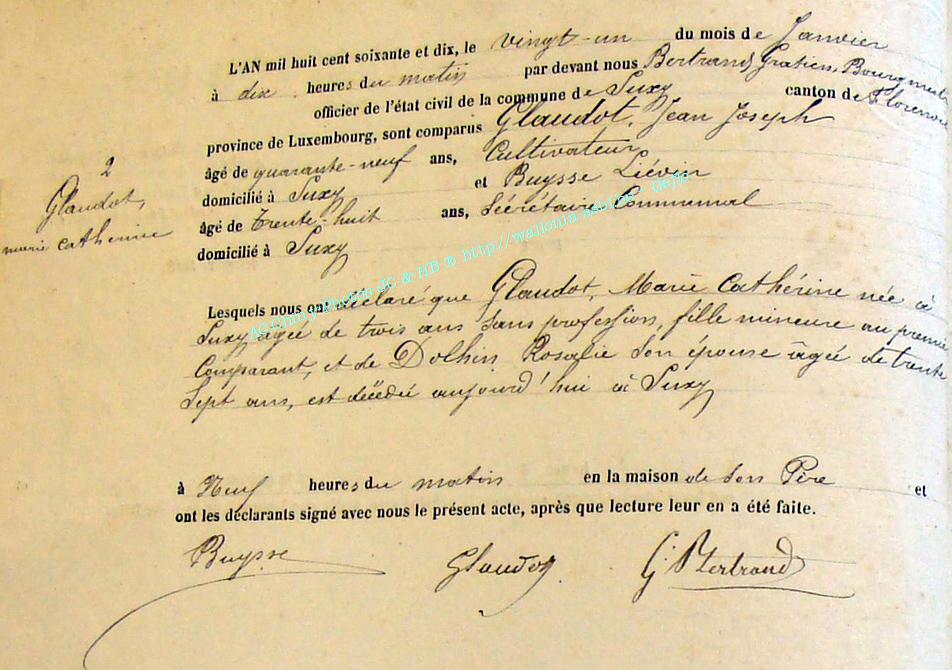 L'AN mil huit cent soixante et dix, le vingt-un du mois de Janvier
à dix heures du matin par devant nous Bertrand, Gratien, Bourgmestre
officier de l'état civil de la commune de Suxy canton de Florenville
province de Luxembourg, sont comparus Glaudot, Jean Joseph
âgé de quarante-neuf ans, Cultivateur
domicilié à Suxy et Buysse Liévin
âgé de trente-huit ans, Sécrétaire Communal
domicilié à Suxy
2
Glaudot,
marie catherine
Lesquels nous ont déclaré que Glaudot, Marie Cathérine née à
Suxy agée de trois ans sans profession, fille mineure au premier
Comparant, et de Dolhin Rosalie son épouse âgée de trente
Sept ans, est décédée aujourd'hui à Suxy
à Neuf heures du matin en la maison de son Père et
ont les déclarants signé avec nous le présent acte, après que lecture leur en a été faite.
Buysse Glaudot G. Bertrand
Photos JC & HB © http://wallonia